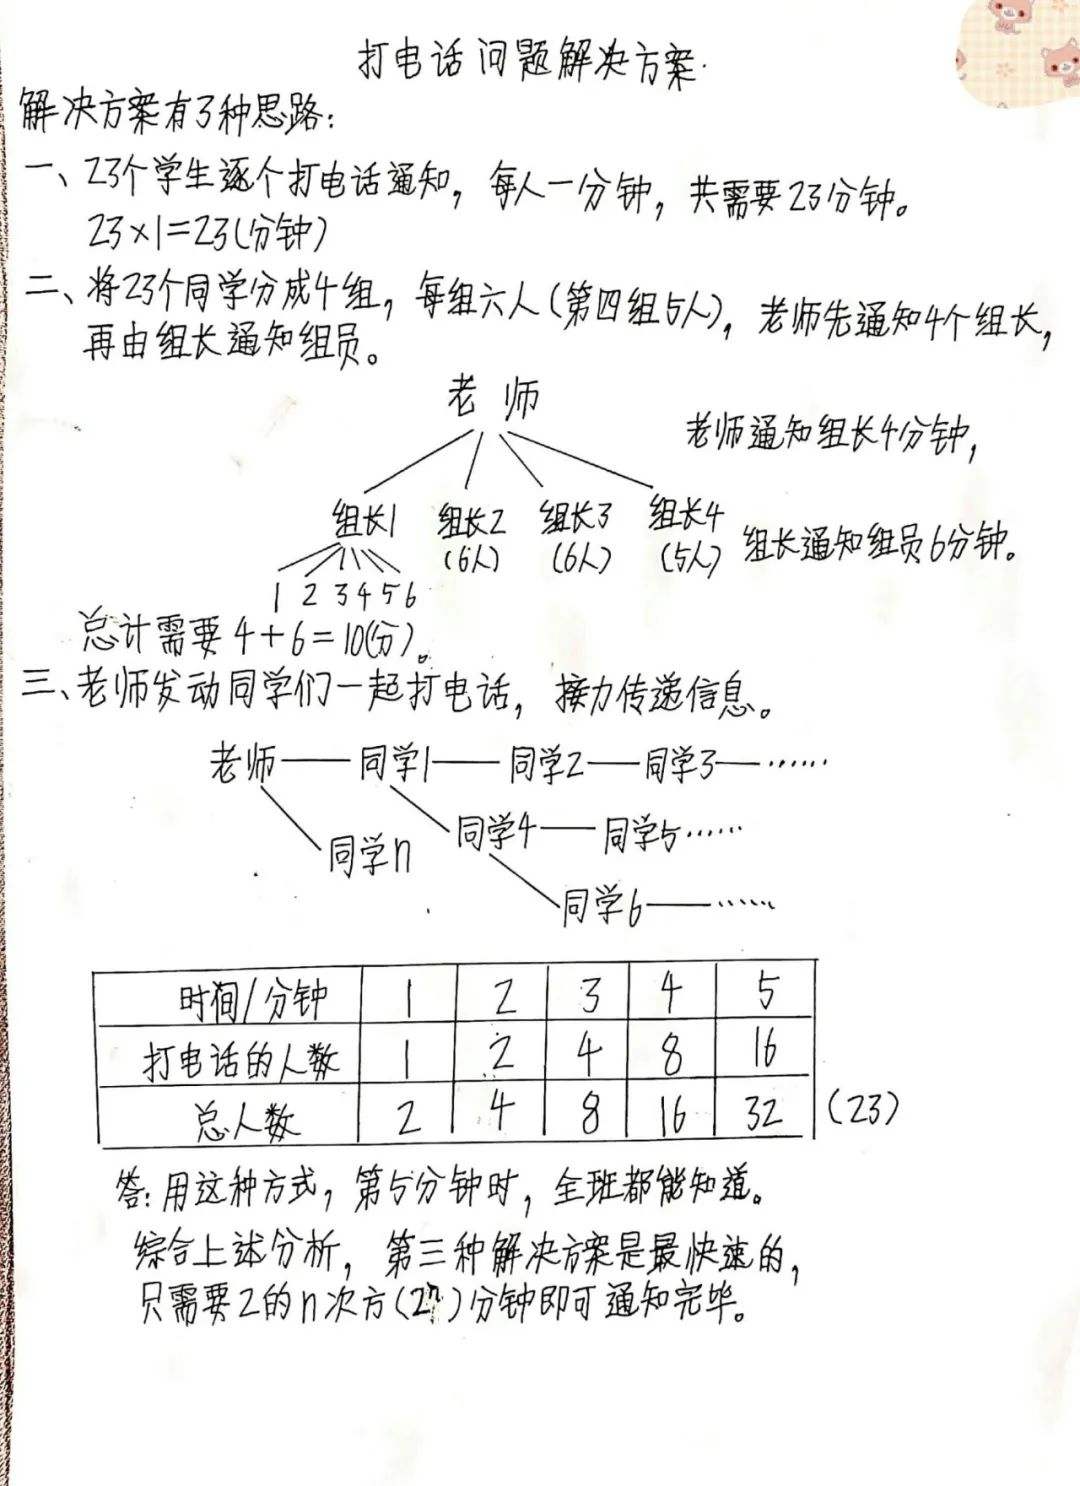 打电话问题解决方案.
解决方案有3种思路:
一、23个学生逐个打电话通知，每人一分钟，共需要23分钟。
23×1=23(分钟)
二、将23个同学分成4组，每组六人(第四组5人)，老师先通知4个组长，
再由组长通知组员。
老师
老师通知组长4分钟，
组长1 组长2 组长3 组长4
(6人) (6人) (5人) 组长通知组员6分钟。
1 2 3 4 5 6
总计需要4+6=10(分)。
三、老师发动同学们一起打电话，接力传递信息。
老师——同学1——同学2——同学3——……
同学4——同学5……
同学n
同学6——……
时间/分钟 1 2 3 4 5
打电话的人数 1 2 4 8 16
总人数 2 4 8 16 32 (23)
答:用这种方式，第5分钟时，全班都能知道。
综合上述分析，第三种解决方案是最快速的，
只需要2的n次方(2ⁿ)分钟即可通知完毕。